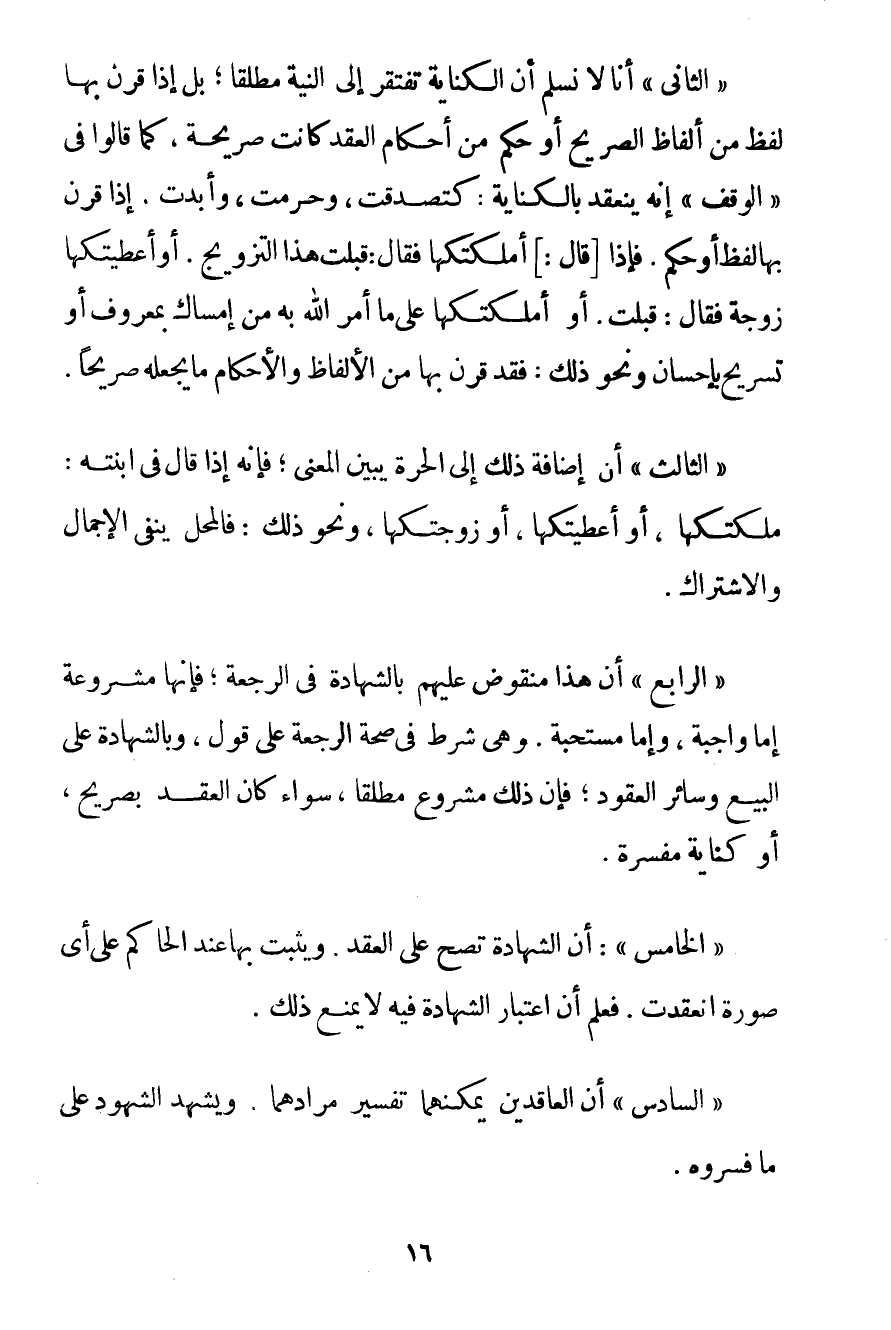 « الثانى » أنا لا نسلم أن الكناية تفتقر إلى النية مطلقا ؛ بل إذا قرن بها
لفظ من ألفاظ الصريح أو حكم من أحكام العقد كانت صريحة ، كما قالوا فى
« الوقف » إنه ينعقد بالكناية : كتصدقت ، وحرمت ، وأبدت . إذا قرن
بها لفظ أو حكم . فإذا [ قال : ] أملكتكها فقال : قبلت هذا التزويج . أو أعطيتكها
زوجة فقال : قبلت . أو أملكتكها على ما أمر الله به من إمساك بمعروف أو
تسريح بإحسان ونحو ذلك : فقد قرن بها من الألفاظ والأحكام ما يجعله صريحاً .
« الثالث » أن إضافة ذلك إلى الحرة يبين المعنى ؛ فإنه إذا قال فى ابنته :
ملكتكها ، أو أعطيتكها ، أو زوجتكها ، ونحو ذلك : فالمحل ينفى الإجمال
والاشتراك .
« الرابع » أن هذا منقوض عليهم بالشهادة فى الرجعة ؛ فإنها مشروعة
إما واجبة ، وإما مستحبة . وهى شرط فى صحة الرجعة على قول ، وبالشهادة على
البيع وسائر العقود ؛ فإن ذلك مشروع مطلقا ، سواء كان العقد بصريح ،
أو كناية مفسرة .
« الخامس » : أن الشهادة تصح على العقد . ويثبت بها عند الحاكم على أى
صورة انعقدت . فعلم أن اعتبار الشهادة فيه لا يمنع ذلك .
« السادس » أن العاقدين يمكنهما تفسير مرادهما . ويشهد الشهود على
ما فسروه .
١٦